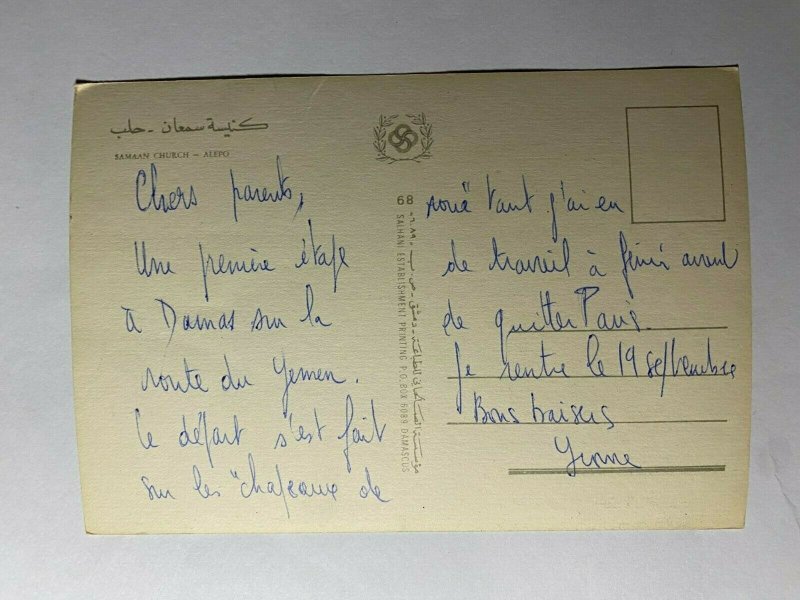 كنيسة سمعان - حلب
SAMAAN CHURCH – ALEPO
Chers parents,
Une première étape
à Damas sur la
route du Yemen.
Le départ s'est fait
sur les "chapeaux de
68
SALHANI ESTABLISHMENT PRINTING P.O.BOX 6089 DAMASCUS
مؤسسة الصالحاني للطباعة - دمشق - ص.ب - ٦٠٨٩
roue" tant j'ai eu
de travail à finir avant
de quitter Paris.
Je rentre le 19 septembre
Bons baisers